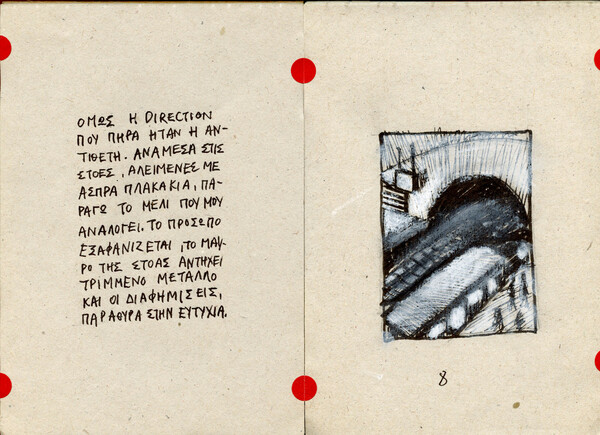 ΟΜΩΣ Η DIRECTION
ΠΟΥ ΠΗΡΑ ΗΤΑΝ Η ΑΝ-
ΤΙΘΕΤΗ. ΑΝΑΜΕΣΑ ΣΤΙΣ
ΣΤΟΕΣ, ΑΛΕΙΜΕΝΕΣ ΜΕ
ΑΣΠΡΑ ΠΛΑΚΑΚΙΑ, ΠΑ-
ΡΑΓΩ ΤΟ ΜΕΛΙ ΠΟΥ ΜΟΥ
ΑΝΑΛΟΓΕΙ. ΤΟ ΠΡΟΣΩΠΟ
ΕΞΑΦΑΝΙΖΕΤΑΙ, ΤΟ ΜΑΥ-
ΡΟ ΤΗΣ ΣΤΟΑΣ ΑΝΤΗΧΕΙ
ΤΡΙΜΜΕΝΟ ΜΕΤΑΛΛΟ
ΚΑΙ ΟΙ ΔΙΑΦΗΜΙΣΕΙΣ,
ΠΑΡΑΘΥΡΑ ΣΤΗΝ ΕΥΤΥΧΙΑ.
8